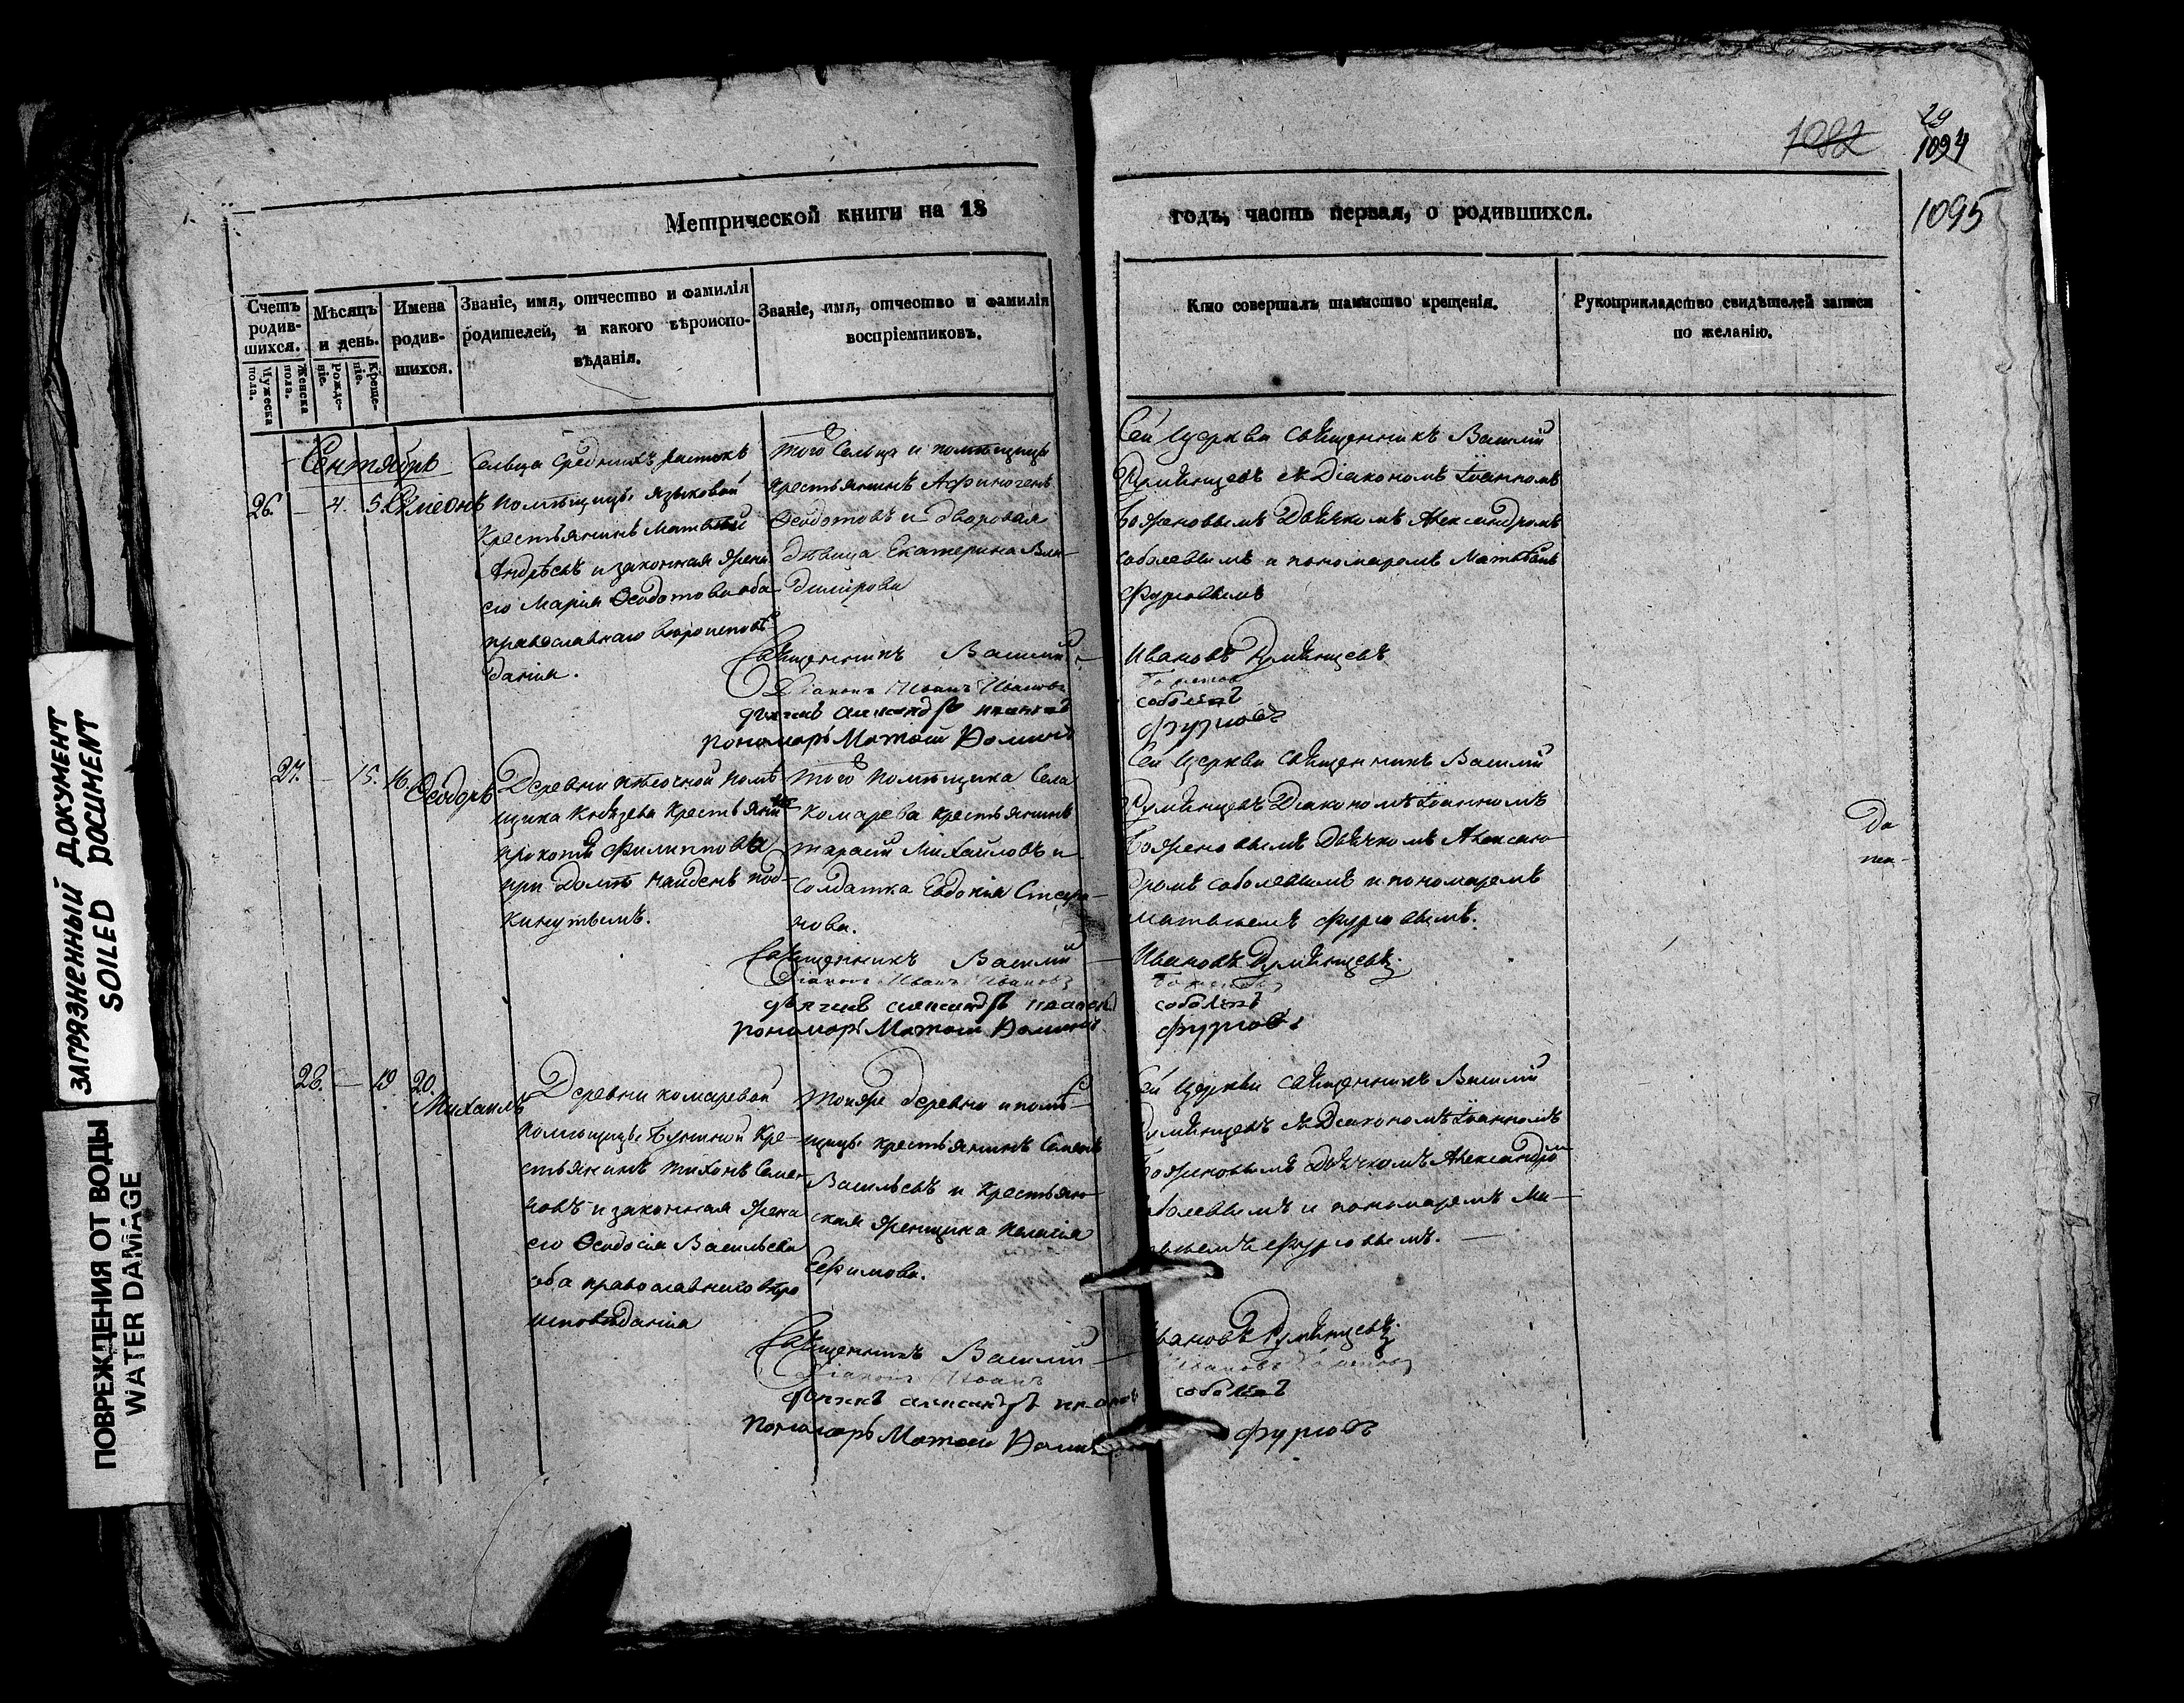 1082
29
1094
1095
Метрической книги на 18
годъ, часть первая, о родившихся.
Счетъ родив-шихся.
Мужеска пола.
Женска пола.
Мѣсяцъ и день.
Рожде-ніе.
Креще-ніе.
Имена родив-шихся.
Званіе, имя, отчество и фамилія
родителей, и какого вѣроиспо-
вѣданія.
Званіе, имя, отчество и фамилія
воспріемниковъ.
Кто совершалъ таинство крещенія.
Рукоприкладство свидѣтелей записи
по желанію.
Сентябрь
26. – 4. 5. Симеонъ
Сельца Среднихъ
помѣщицы Языковой
крестьянинъ Матвѣй
Андрѣевъ и законная жена
его Марія Ѳеодотова оба
православнаго вѣроисповѣ
данія.
того Сельца и помѣщицы
крестьянинъ Афиногенъ
Ѳеодотовъ и дворовая
дѣвица Екатерина Вла-
димірова
Сей Церкви священникъ Василій
Румянцевъ съ Діакономъ Іоанномъ
Боженовымъ Дьячкомъ Александромъ
соболевымъ и пономаремъ Матвѣемъ
Фурговымъ
Священникъ Василій –
Ивановъ Румянцевъ
Діаконъ Иванъ Ивановъ
дьячекъ александръ
соболевъ
пономарь Матвей
27. – 15. 16. Ѳеодоръ
Деревни помѣ-
щика Князева Крестьяни
прокопія Филиппова
при домѣ найденъ под-
кинутымъ.
того помѣщика Села
Комарева крестьянинъ
тарасій Михайловъ и
солдатка Евдокія
нова.
Сей Церкви священникъ Василій
Румянцевъ Діакономъ Іоанномъ
Боженовымъ Дьячкомъ Алексан-
дромъ соболевымъ и пономаремъ
матвѣемъ Фурговымъ.
Священникъ Василій –
Ивановъ Румянцевъ
Діаконъ Иванъ Ивановъ
дьячекъ александръ
соболевъ
пономарь Матвей
28. – 19 20. Михаилъ
Деревни комаревой
помѣщицы Буниной кре-
стьянинъ тихонъ Семе-
новъ и законная жена
его Ѳеодосія Васильева
оба православнаго вѣро
исповѣданія
тойже деревни и помѣ-
щицы крестьянинъ Семенъ
Васильевъ и крестьян-
ская женщина Пелагія
Ефимова.
Сей Церкви священникъ Василій
Румянцевъ съ Діакономъ Іоанномъ
Боженовымъ Дьячкомъ Александром
болевымъ и пономаремъ Ма-
Фурговымъ. –
Священникъ Василій –
Ивановъ Румянцевъ
Діаконъ Иванъ
дьячекъ александръ
соболевъ
пономарь Матвей
ЗАГРЯЗНЕННЫЙ ДОКУМЕНТ
SOILED DOCUMENT
ПОВРЕЖДЕНИЯ ОТ ВОДЫ
WATER DAMAGE